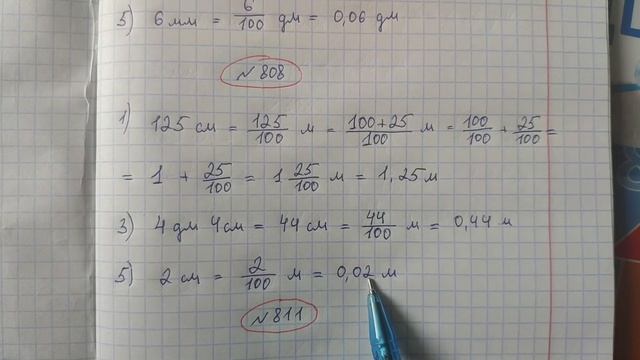 5) 6 мм = 6/100 дм = 0,06 дм
№ 808
1) 125 см = 125/100 м = 100+25/100 м = 100/100 + 25/100 =
= 1 + 25/100 = 1 25/100 м = 1,25 м
3) 4 дм 4 см = 44 см = 44/100 м = 0,44 м
5) 2 см = 2/100 м = 0,02 м
№ 811